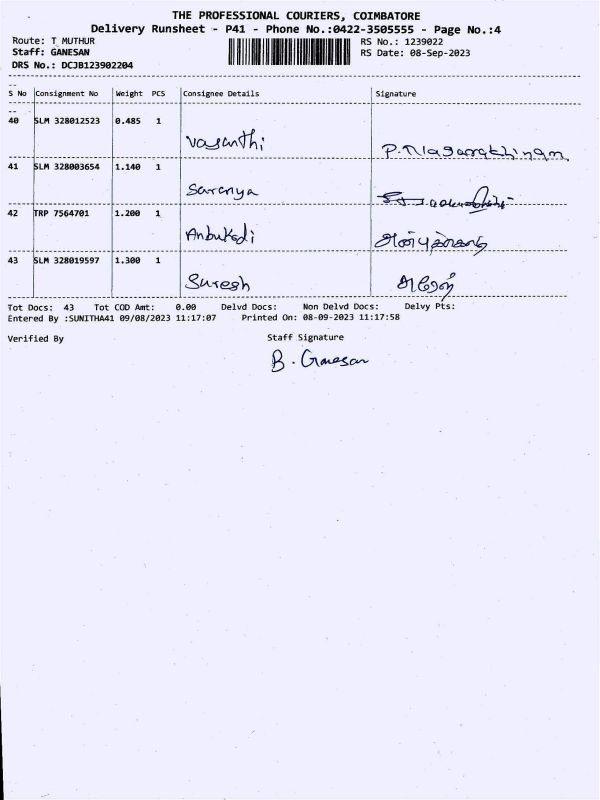 THE PROFESSIONAL COURIERS, COIMBATORE
Delivery Runsheet - P41 - Phone No.:0422-3505555 - Page No.:4
Route: T MUTHUR RS No.: 1239022
Staff: GANESAN RS Date: 08-Sep-2023
DRS No.: DCJB123902204
S No Consignment No Weight PCS Consignee Details Signature
40 SLM 328012523 0.485 1
Vasanthi
41 SLM 328003654 1.140 1
Saranya
42 TRP 7564701 1.200 1
Anbukodi
43 SLM 328019597 1.300 1
Suresh
Tot Docs: 43 Tot COD Amt: 0.00 Delvd Docs: Non Delvd Docs: Delvy Pts:
Entered By :SUNITHA41 09/08/2023 11:17:07 Printed On: 08-09-2023 11:17:58
Verified By Staff Signature
B. Ganesan